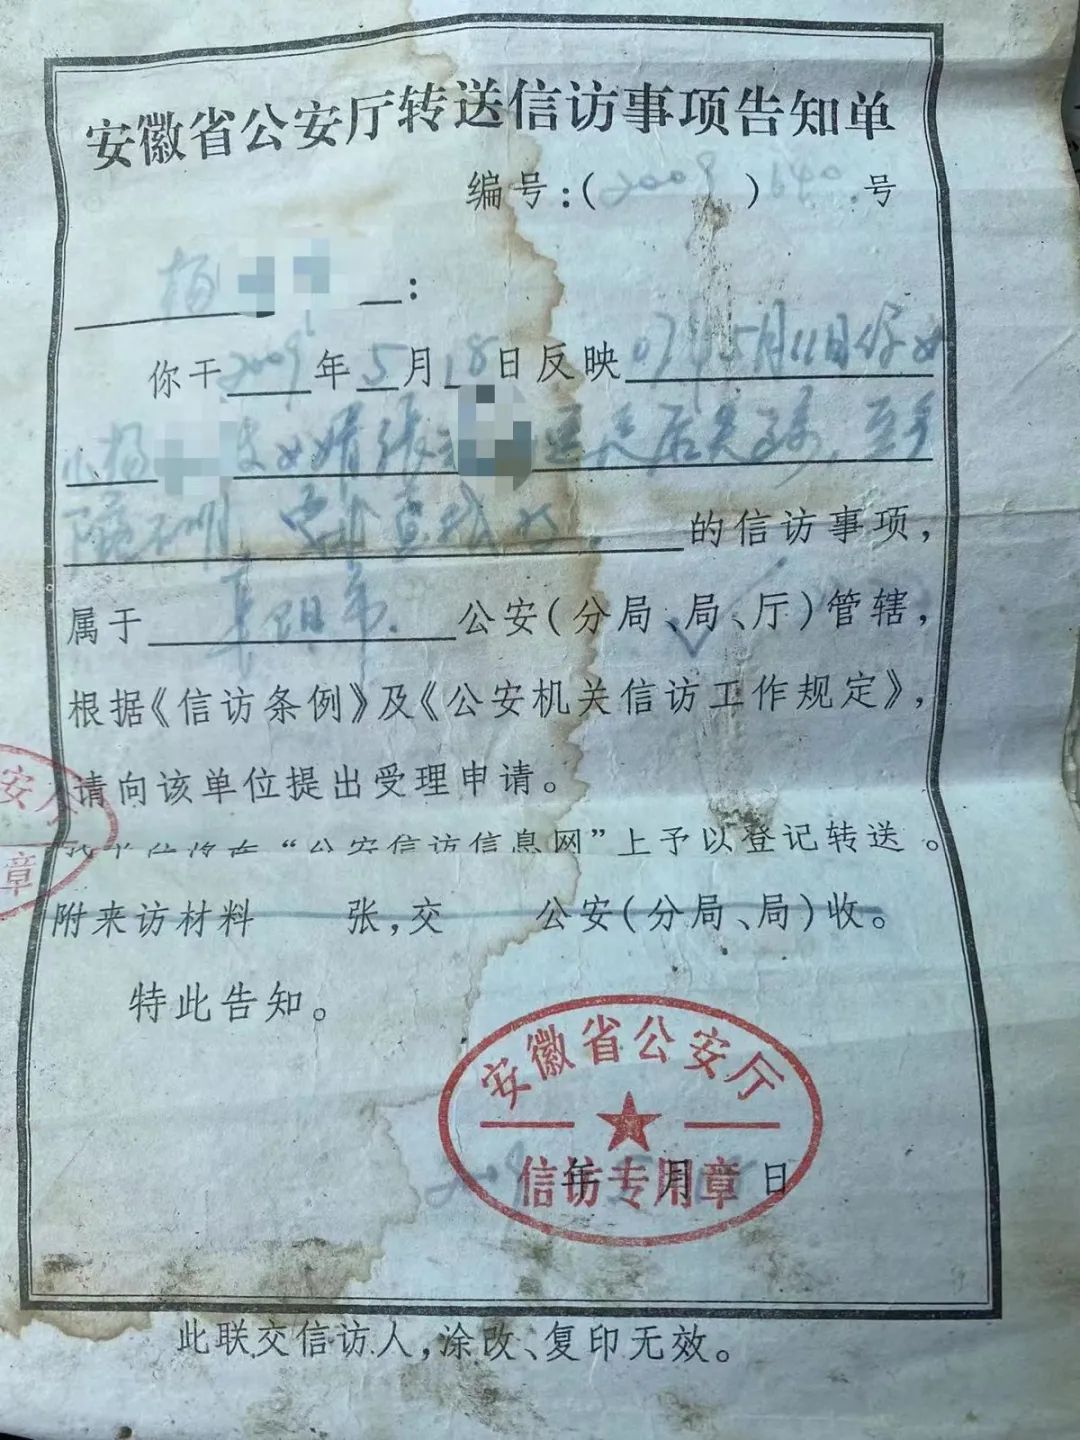 安徽省公安厅转送信访事项告知单
编号:(2009)640号
杨:
你于2009年5月18日反映07年5月11日你女
小杨被女婿张后失踪,至今
下落不明,要求查找女的信访事项,
属于阜阳市公安(分局、局、厅)管辖,
根据《信访条例》及《公安机关信访工作规定》,
请向该单位提出受理申请。
“公安信访信息网”上予以登记转送。
附来访材料 张,交 公安(分局、局)收。
特此告知。
安徽省公安厅
信访专用章
2009年 月 日
此联交信访人,涂改、复印无效。
安
章